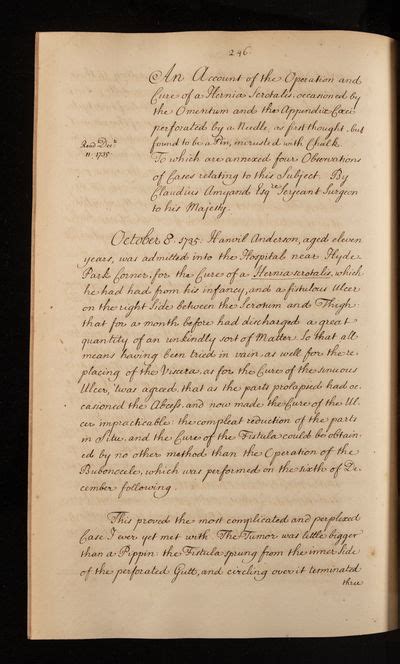 246
An Account of the Operation and
Cure of a Hernia Scrotalis, occasioned by
the Omentum and the Appendix Cæci
perforated by a Needle, as first thought, but
found to be a Pin, incrusted with Chalk.
Read Decr.
11. 1735
To which are annexed four Observations
of Cases relating to this Subject. By
Claudius Amyand Esqre Serjeant Surgeon
to his Majesty.
October 8. 1735. Hanvil Anderson, aged eleven
years, was admitted into the Hospital near Hyde
Park Corner, for the Cure of a Hernia scrotalis, which
he had had from his infancy, and a fistulous Ulcer
on the right Side between the Scrotum and Thigh
that for a month before had discharged a great
quantity of an unkindly sort of Matter. So that all
means having been tried in vain, as well for the re-
placing of the Viscera, as for the Cure of the sinuous
Ulcer, 'twas agreed, that as the parts prolapsed had oc-
casioned the Abcess, and now made the Cure of the Ul-
cer impracticable: the compleat reduction of the parts
in Situ, and the Cure of the Fistula could be obtain-
ed by no other method than the Operation of the
Bubonocele, which was performed on the sixth of De-
cember following.
This proved the most complicated and perplexed
Case I ever yet met with. The Tumor was little bigger
than a Pippin: the Fistula sprung from the inner side
of the perforated Gutt, and circling over it terminated
three